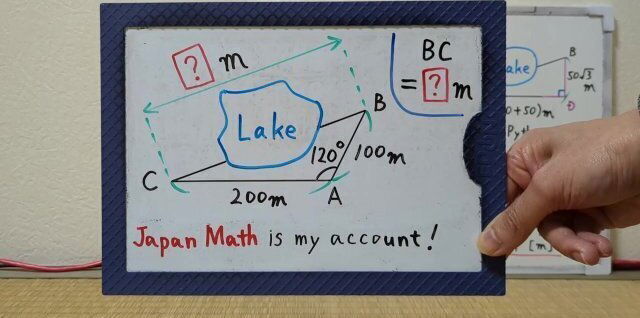 ? m
BC
= ? m
Lake
B
120°
100m
C
200m
A
Japan Math is my account!
ake
B
50√3
m
D
0+50)m
Pyth
[m]